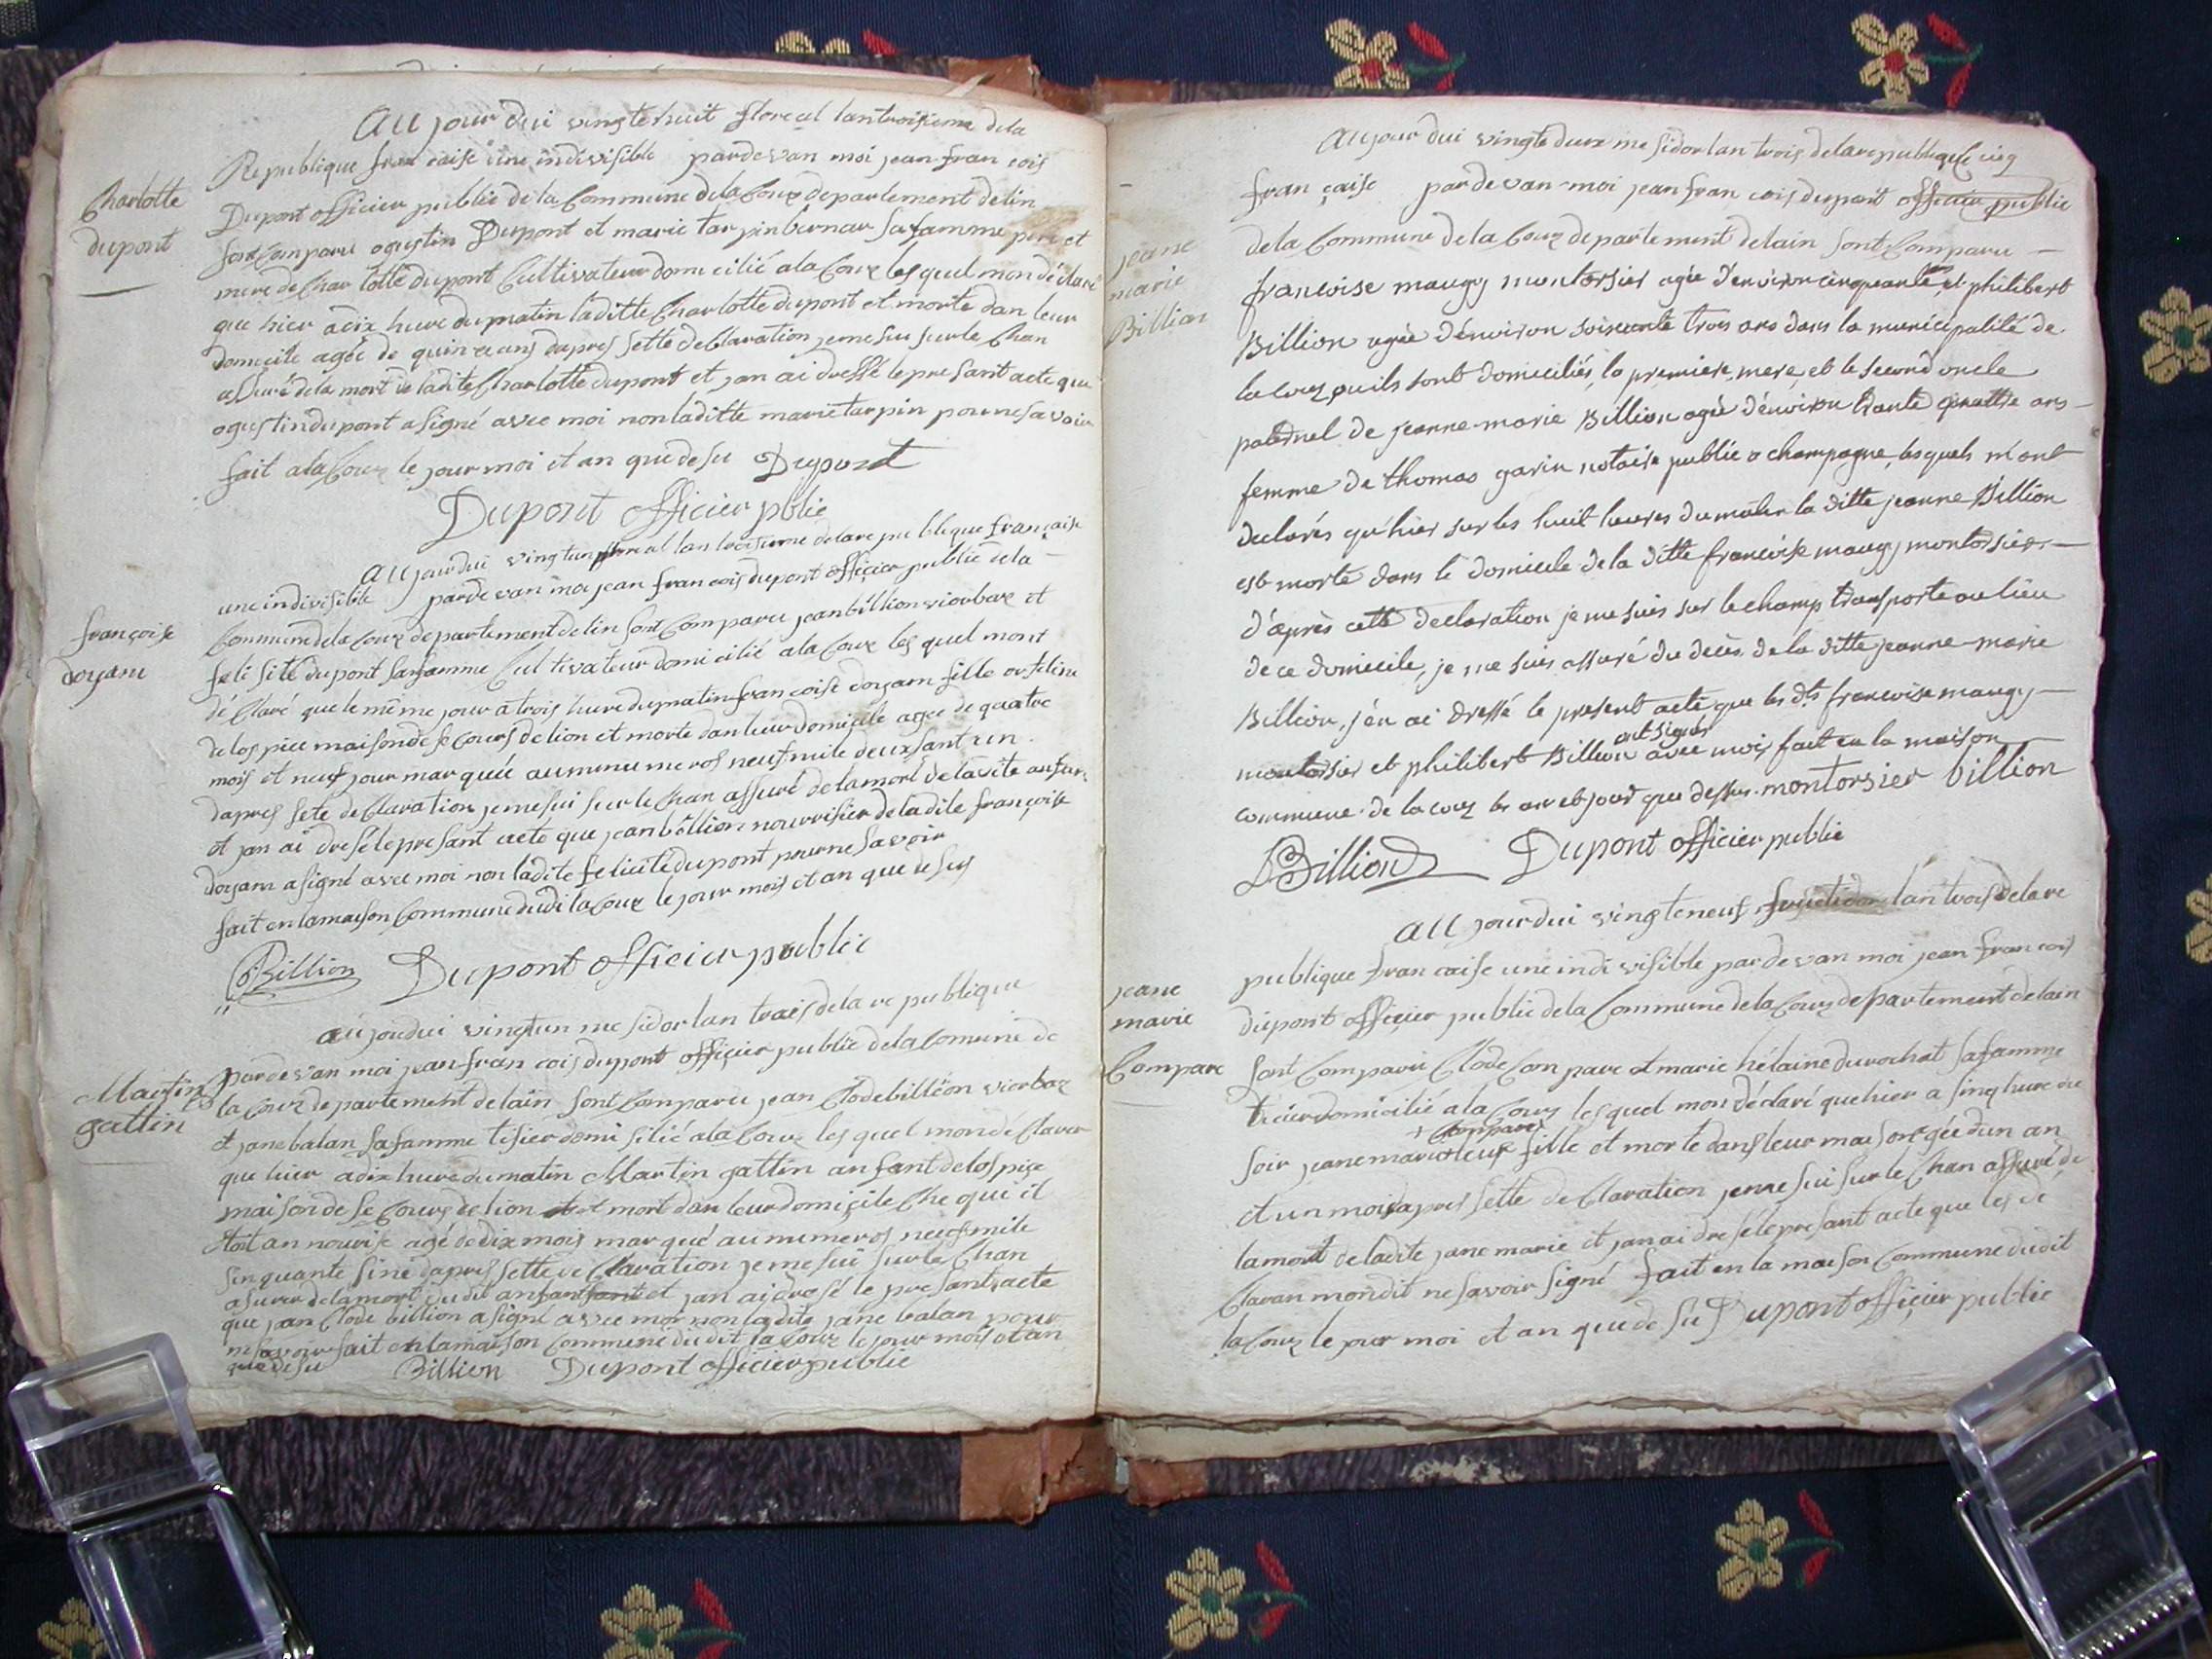 Charlotte
dupont
Au jour dui vingtehuit floreal lantroisieme dela
Republique fran caise une indivisible pardevan moi jean fran cois
Dupont officier public de la Commune delaCouz departement delin
sont Comparu ogustin Dupont et marie tarpinbernar Safamme pere et
mere de Charlotte dupont Cultivateur domicilié alaCouz lesquel mon déclaré
que hier adix hure dumatin laditte Charlotte dupont et morte dan leur
domicile agée de quinze ans dapres sette deClaration jemesui surle Chan
assuré dela mort de ladite Charlotte dupont et jan ai dressé lepresant acte que
ogustindupont asigné avec moi non laditte marie tarpin pour nesavoir
fait alaCouz le jour moi et an que desu Dupont
Dupont officier pblic
françoise
doyam
Au jourdui vingtun floreal lan troisieme delare publique française
une indivisible pardevan moi jean francois dupont officier public dela
Commune delaCouz departement delin sont Comparu jeanbillion viorbaz et
feli sité dupont safamme Cultivateur domicilié alaCouz les quel mont
déClaré que le même jour a trois hure dumatin francoise doyam fille orfeline
delospice maisondeseCours delion et morte danleur domicile agée de quatre
mois et neuf jour marquée au numeros neuf mile deux sant un
dapres sete deClaration jemesui surleChan assuré delamort delavite anfan
et jan ai dresé lepresant acte que jeanbillion nourrisier deladite françoise
doyam asigné avec moi non ladite felicité dupont pournesavoir
fait enlamaison Commune dudit laCouz le jour mois et an que desus
Billion Dupont officier public
Martin
gattin
aujoudui vingtun mesidor lan trois delare publique
pardevan moi jean fran cois dupont officier public delaComune de
la Couz departement delain sont Comparu jean Clode billion viorbaz
et jane balan safamme tisier domi silié alaCouz les quel mon déClarer
que hier adix hure dumatin Martin gattin anfant delospice
maison de se Cours de lion et mort dan leur domicile Che qui il
etoit an nourise agé dedix mois marqué aunumeros neuf mile
sinquante siné dapres sette deClaration jemesui surle Chan
asurer delamort dudit anfant et jan ai dresé le presant acte
que jean Clode billion asigné avec moi non ladite jane balan pour
nesavoir fait enlamaison Commune dudit laCouz le jour mois et an
que desu Billion Dupont officier public
jeane
marie
Billion
Aujour dui vingtedeux mesidor lan trois delarepublique
fran çaise pardevan moi jean fran cois dupont officier public
dela Commune delaCouz departement delain sont Comparu
francoise maugy montorsier agée d'environ cinquante ans et philibert
Billion agée d'environ soixante trois ans dans la municipalité de
la couz ou ils sont domiciliés, la premiere mere, et le second oncle
paternel de jeanne-marie Billion agée d'environ trante quattre ans
femme de thomas garin notaire public a champagne, lesquels m'ont
declarés qu'hier sur les huit heures du matin la ditte jeanne Billion
est morte dans le domicile de la ditte francoise maugy montorsier
d'après cette declaration je me suis sur le champ transporté au lieu
de ce domicile, je me suis assuré du decès de la ditte jeanne-marie
Billion, j'en ai dressé le present acte que les dts francoise maugy
montorsier et philibert Billion ont signés avec moi, fait en la maison
commune de la couz les an et jour que dessus. montorsier billion
Billion Dupont officier public
jeane
marie
Compare
Au jourdui vingteneuf fructidor lan trois delare
publique fran caise une indi visible pardevan moi jean francois
dupont officier public dela Commune delaCouz departement delain
sont Comparu Clode Compare et marie hélaine durochat safamme
domicilié alaCouz lesquel mon déclaré que hier a sinq hure du
soir jeane marie Compare leur fille et morte dans leur maison agée dun an
et un mois dapres sette deClaration jemesui surle Chan assuré de
lamort deladite jane marie et jan ai dresé lepresant acte que les de
Claran mondit nesavoir signé fait en la maison Commune dudit
laCouz le jour moi et an que de su Dupont officier public